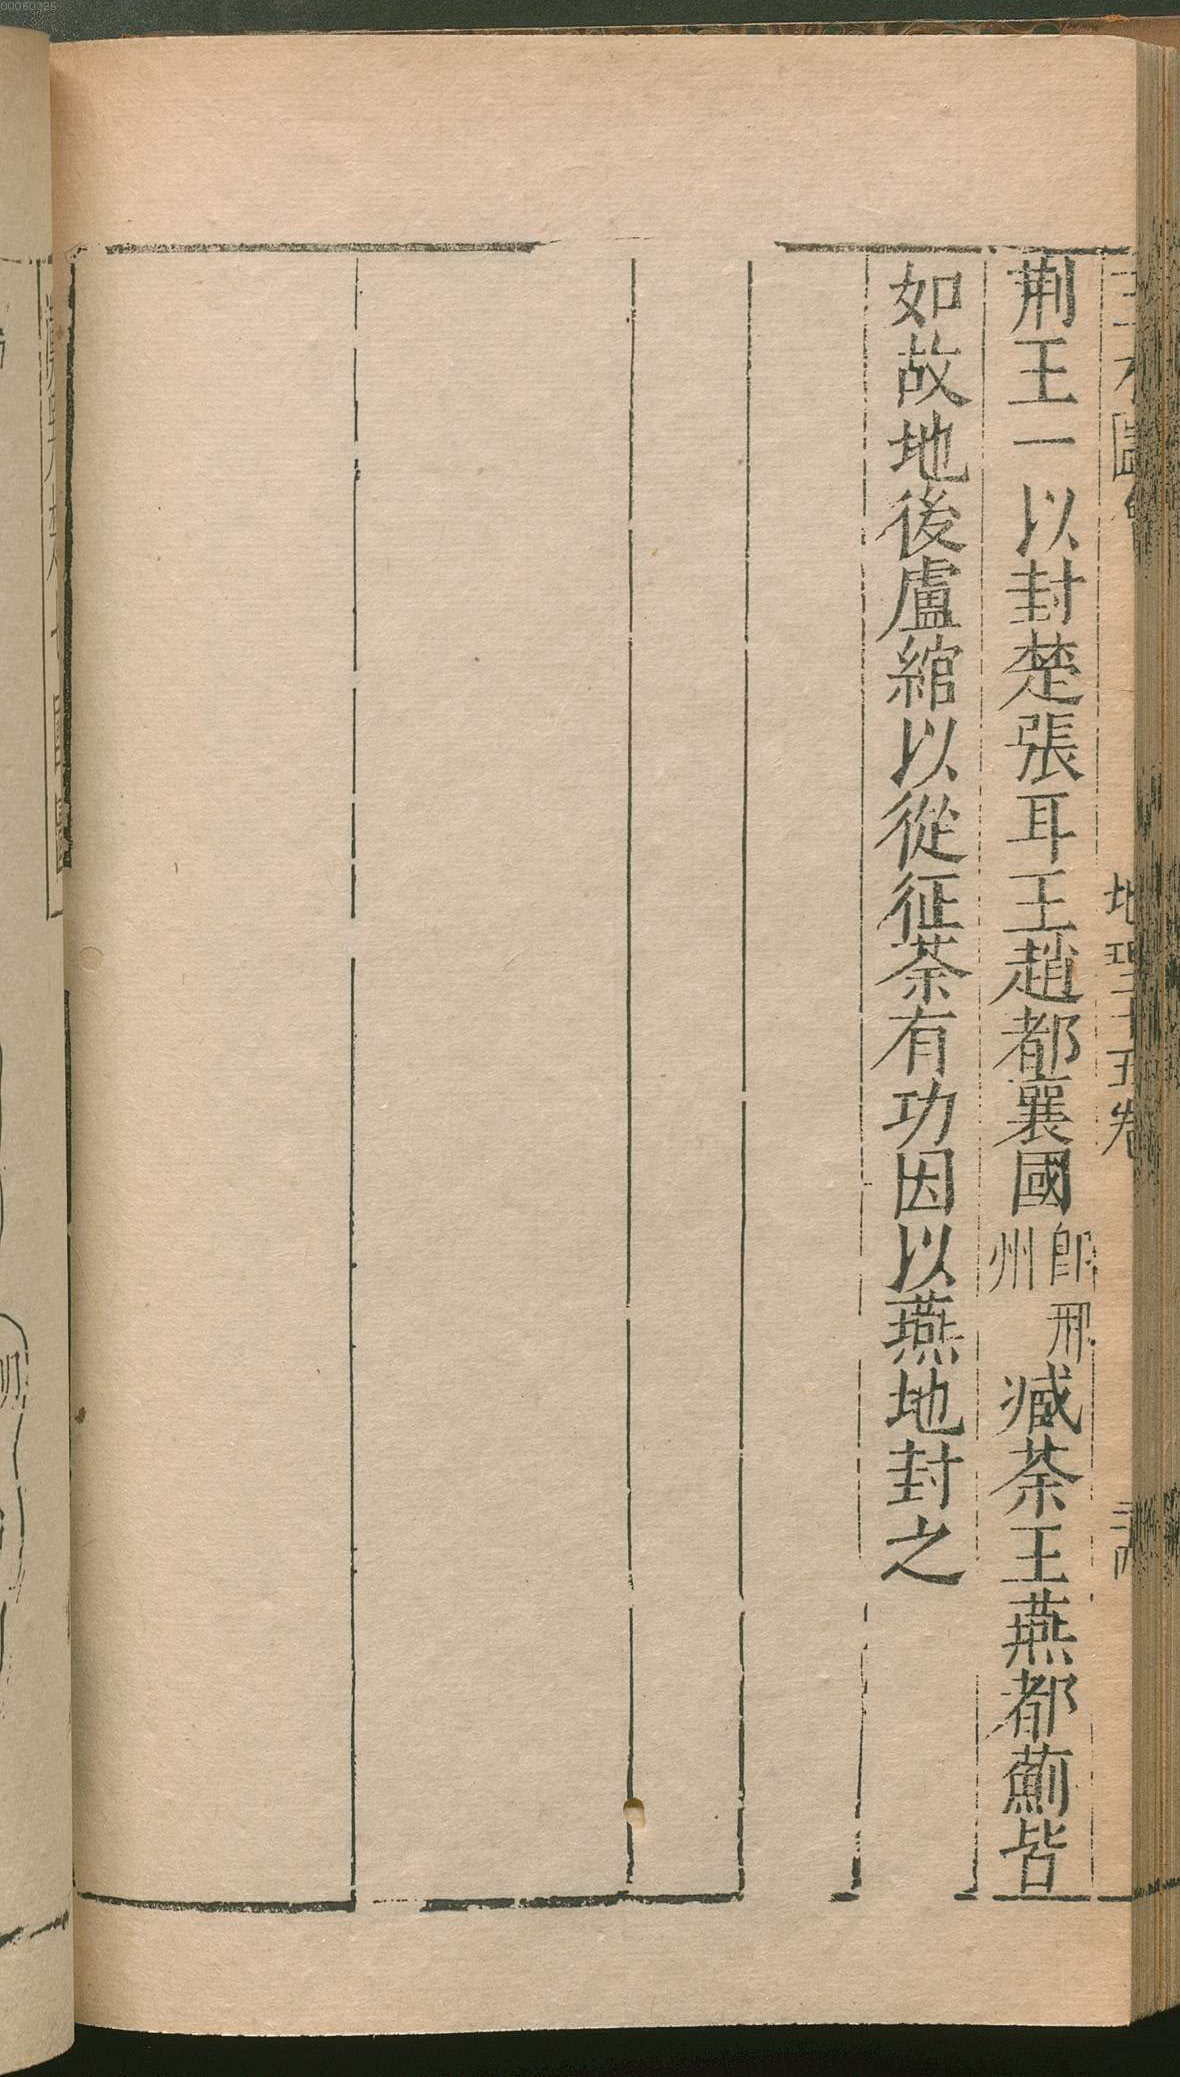 地理十五卷
荆王一以封楚張耳王趙都襄國卽邢州臧荼王燕都薊皆
如故地後盧綰以從征荼有功因以燕地封之